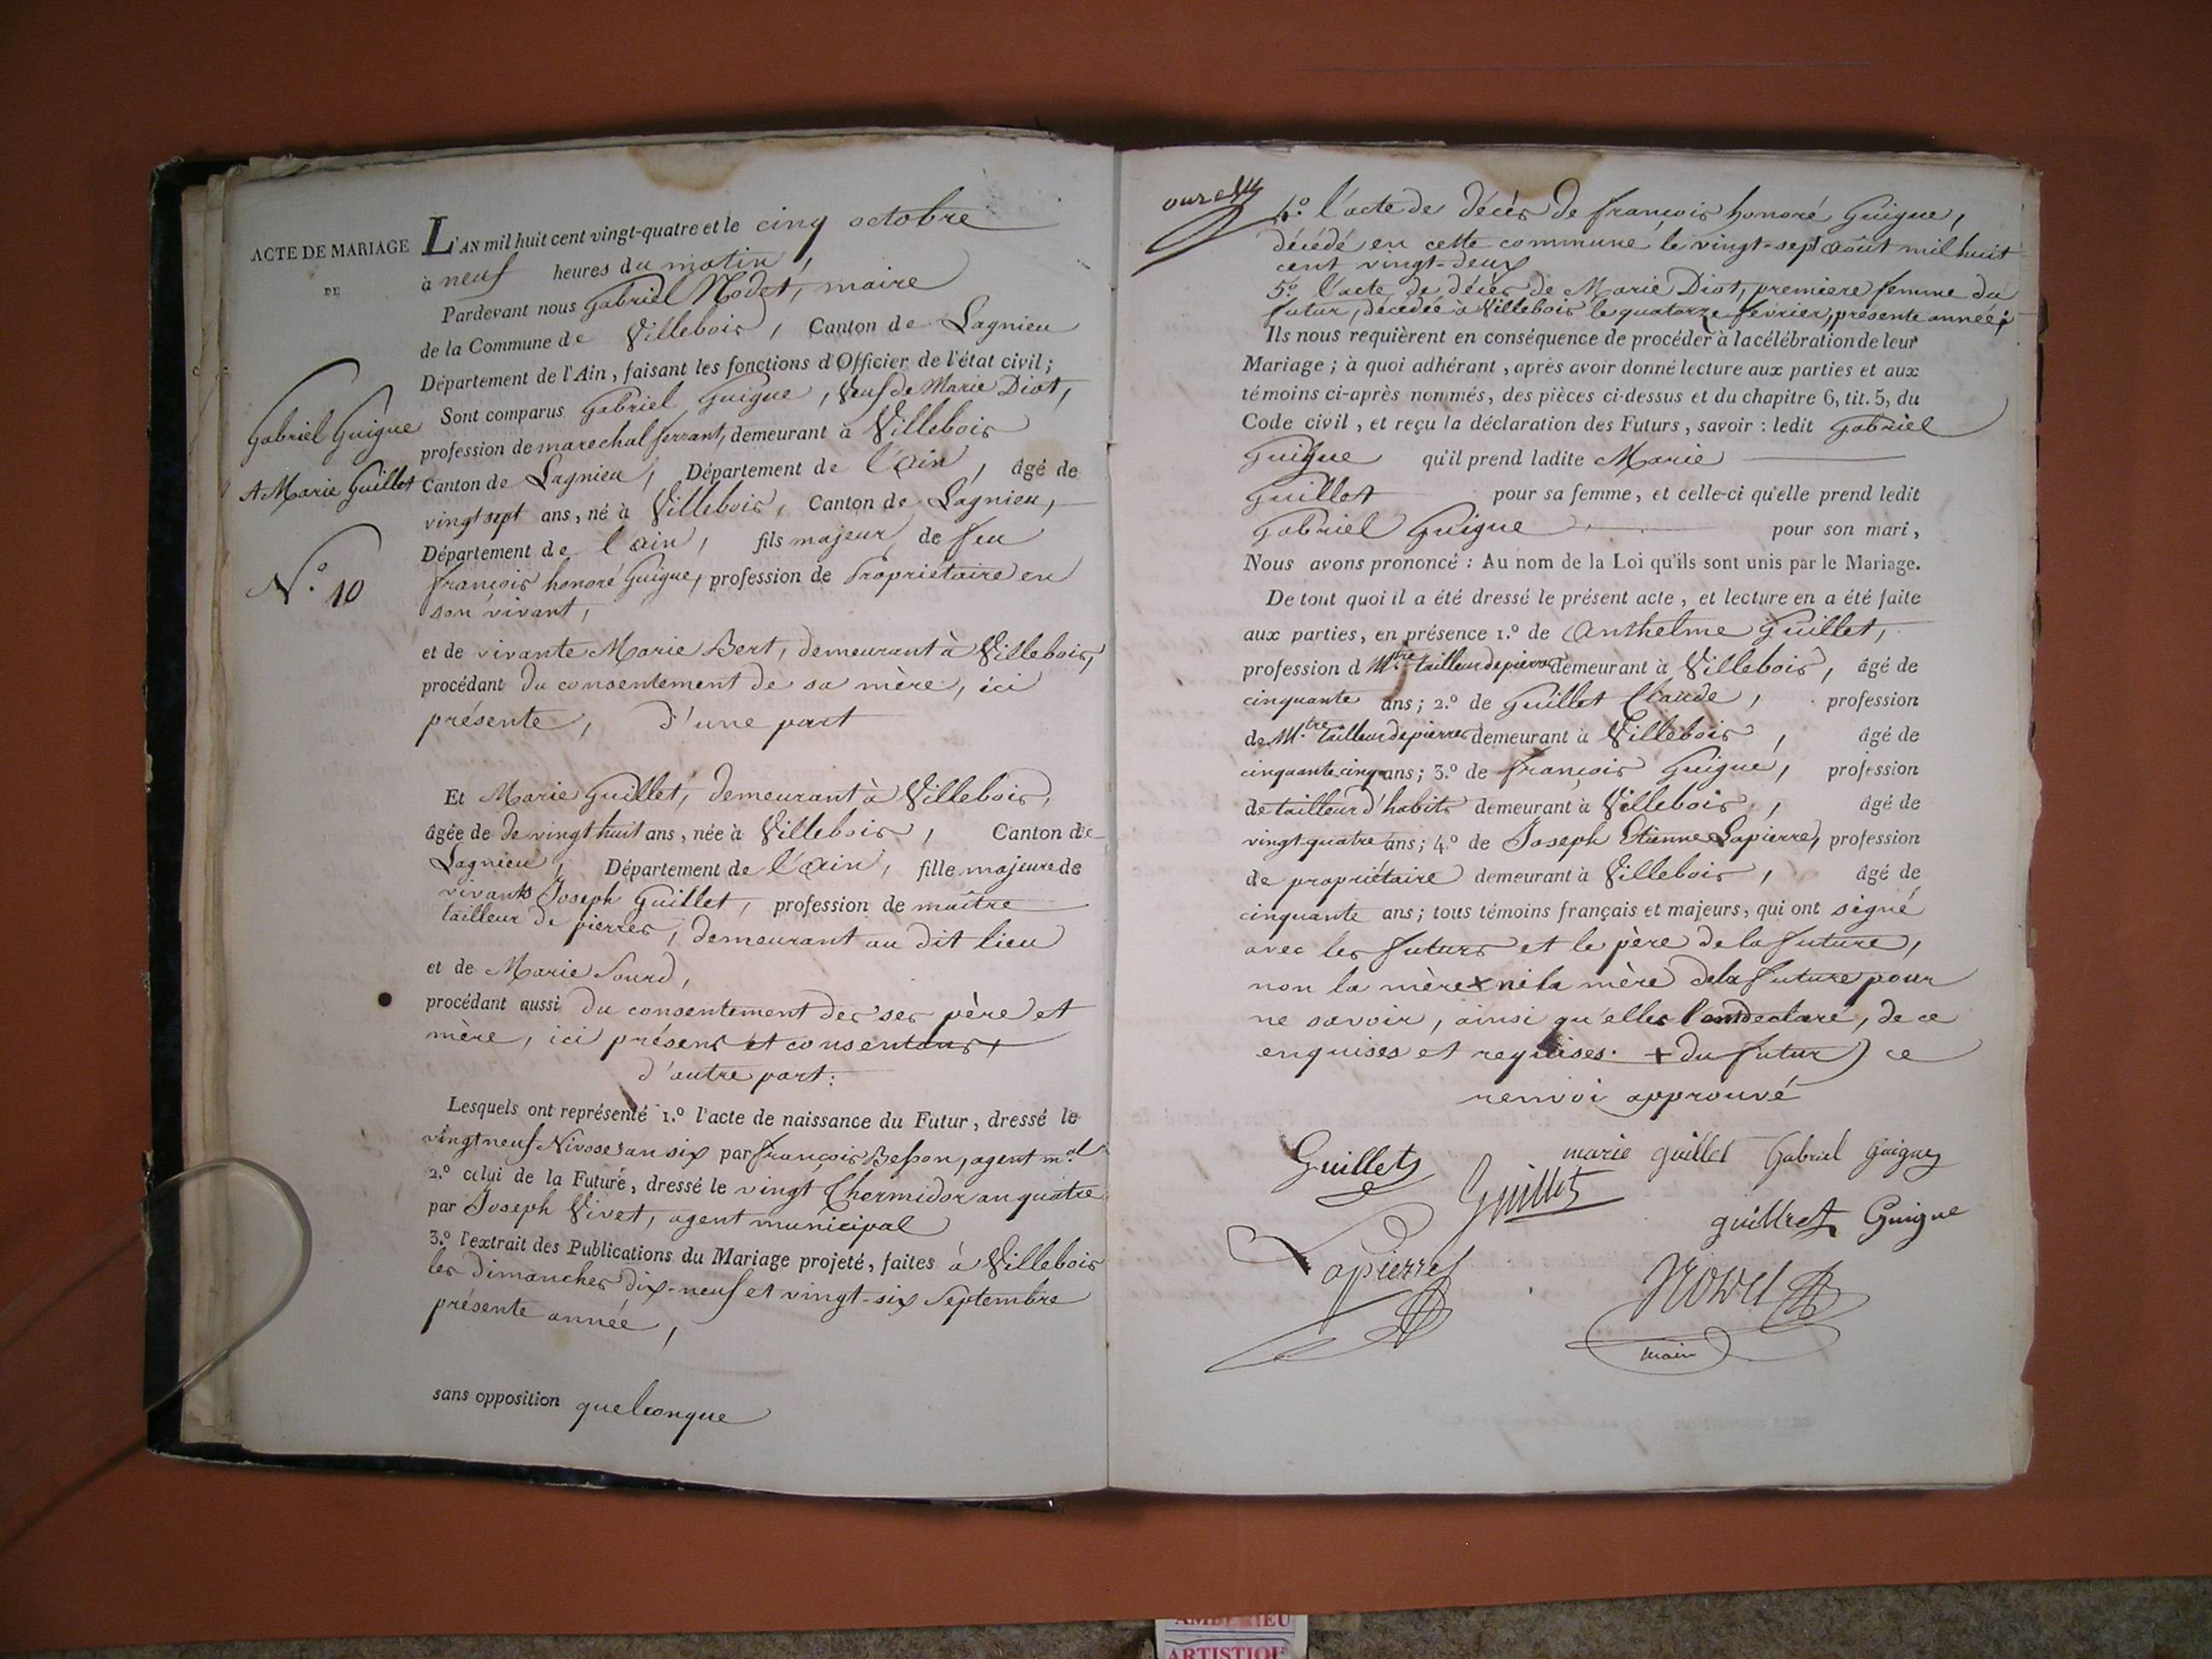 ACTE DE MARIAGE
DE
Gabriel Guigue
A Marie Guillet
N.° 10
L'AN mil huit cent vingt-quatre et le cinq octobre
à neuf heures du matin,
Pardevant nous Gabriel Nodet, maire
de la Commune de Villebois, Canton de Lagnieu
Département de l'Ain, faisant les fonctions d'Officier de l'état civil;
Sont comparus Gabriel Guigue, Veuf de Marie Diot,
profession de marechal ferrant, demeurant à Villebois
Canton de Lagnieu, Département de l'ain, âgé de
vingt sept ans, né à Villebois, Canton de Lagnieu,
Département de l'ain, fils majeur de feu
françois honoré Guigue, profession de Propriétaire en
son vivant,
et de vivante Marie Bert, demeurant à Villebois,
procédant du consentement de sa mère, ici
présente, d'une part
Et Marie Guillet, demeurant à Villebois,
âgée de de vingt huit ans, née à Villebois, Canton de
Lagnieu, Département de l'ain, fille majeure de
vivants Joseph Guillet, profession de maître
tailleur de pierres, demeurant au dit lieu
et de Marie Sourd,
procédant aussi du consentement des ses père et
mère, ici présens et consentans,
d'autre part:
Lesquels ont représenté 1.° l'acte de naissance du Futur, dressé le
vingt neuf Nivose an six par françois Besson, agent m.al
2.° celui de la Future, dressé le vingt Thermidor an quatre
par Joseph Vivet, agent municipal
3.° l'extrait des Publications du Mariage projeté, faites à Villebois
les dimanches dix-neuf et vingt-six Septembre
présente année,
sans opposition quelconque
4.° l'acte de décès de françois honoré Guigue,
décédé en cette commune, le vingt-sept août mil huit
cent vingt-deux
5.° l'acte de décès de Marie Diot, premiere femme du
futur, décédée à Villebois le quatorze fevrier, présente année;
Ils nous requièrent en conséquence de procéder à la célébration de leur
Mariage; à quoi adhérant, après avoir donné lecture aux parties et aux
témoins ci-après nommés, des pièces ci-dessus et du chapitre 6, tit. 5, du
Code civil, et reçu la déclaration des Futurs, savoir: ledit Gabriel
Guigue qu'il prend ladite Marie
Guillet pour sa femme, et celle-ci qu'elle prend ledit
Gabriel Guigue pour son mari,
Nous avons prononcé: Au nom de la Loi qu'ils sont unis par le Mariage.
De tout quoi il a été dressé le présent acte, et lecture en a été faite
aux parties, en présence 1.° de Anthelme Guillet,
profession d M.tre tailleur de pierre demeurant à Villebois, âgé de
cinquante ans; 2.° de Guillet Claude, profession
de M.tre tailleur de pierres demeurant à Villebois, âgé de
cinquante cinq ans; 3.° de françois Guigue, profession
de tailleur d'habits demeurant à Villebois, âgé de
vingt quatre ans; 4.° de Joseph Etienne Lapierre, profession
de propriétaire demeurant à Villebois, âgé de
cinquante ans; tous témoins français et majeurs, qui ont signé
avec les futurs et le père de la future,
non la mère + ni la mère de la future pour
ne savoir, ainsi qu'elles l'ont declaré, de ce
enquises et requises. + du futur) ce
renvoi approuvé
Guillet marie guillet Gabriel Guigue
Guillet
guillret Guigue
Lapierre
Nodet
maire
AMBERIEU
ARTISTIQUE